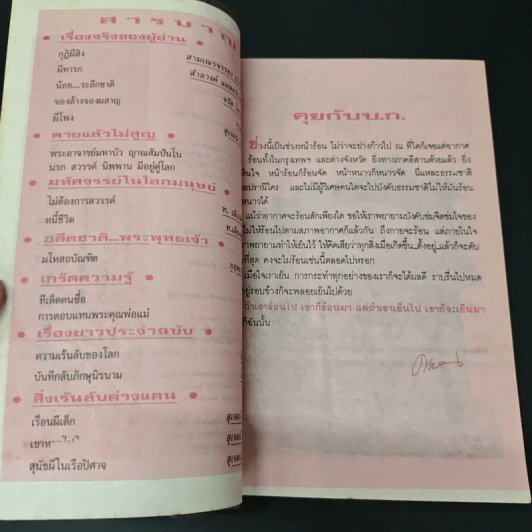 สารบาญ
เรื่องจริงของผู้อ่าน
กุฏิผีสิง
ผีทารก
น้อย...ระลึกชาติ
จองล้างจองผลาญ
ผีโพง
ตายแล้วไม่สูญ
พระอาจารย์มหาบัว ญาณสัมปันโน
นรก สวรรค์ นิพพาน มีอยู่คู่โลก
มหัศจรรย์ในโลกมนุษย์
ไม่ต้องการสวรรค์
หนี้ชีวิต
อดีตชาติ...พระพุทธเจ้า
มโหสถบัณฑิต
เกร็ดความรู้
ทีเด็ดคนซื่อ
การตอบแทนพระคุณพ่อแม่
เรื่องยาวประจำฉบับ
ความเร้นลับของโลก
บันทึกลับภิกษุนิรนาม
สิ่งเร้นลับต่างแดน
เรือนผีเด็ก
สุนัขผีในเรือปีศาจ
คุยกับบ.ก.
ช่วงนี้เป็นช่วงหน้าร้อน ไม่ว่าจะย่างก้าวไป ณ ที่ใดก็เจอแต่อากาศ
ร้อนทั้งในกรุงเทพฯ และต่างจังหวัด ยิ่งทางภาคอีสานด้วยแล้ว ยิ่ง
หน้าร้อนก็ร้อนจัด หน้าหนาวก็หนาวจัด นี่แหละธรรมชาติ
ปรานีใคร และไม่มีผู้วิเศษคนใดจะไปบังคับธรรมชาติไม่ให้มันร้อน
หนาวได้
แม้ว่าอากาศจะร้อนสักเพียงใด ขอให้เราพยายามบังคับข่มจิตข่มใจของ
ไม่ให้ร้อนไปตามสภาพอากาศก็แล้วกัน ถึงกายจะร้อน แต่ภายในใจ
เราพยายามทำให้เย็นไว้ ให้คิดเสียว่าทุกสิ่งเมื่อเกิดขึ้น...ตั้งอยู่แล้วก็จะดับ
ที่สุด คงจะไม่ร้อนเช่นนี้ตลอดไปหรอก
เมื่อใจเราเย็น การกระทำทุกอย่างของเราก็จะได้ผลดี ราบรื่นไปหมด
อยู่รอบข้างก็จะพลอยเย็นไปด้วย
ถ้าเราร้อนไป เขาก็ร้อนมา แต่ถ้าเราเย็นไป เขาก็จะเย็นมา
ฉันนั้น